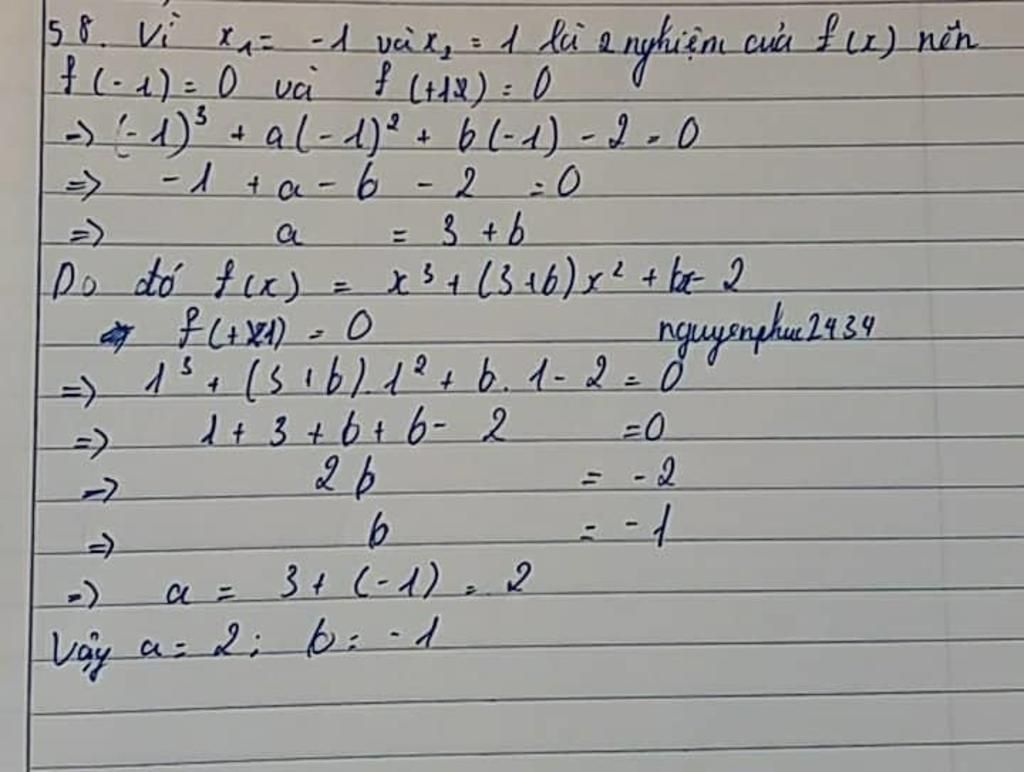 58. Vì x₁ = -1 và x₂ = 1 là 2 nghiệm của f(x) nên
f(-1) = 0 và f(+1) = 0
=> (-1)³ + a(-1)² + b(-1) - 2 = 0
=> -1 + a - b - 2 = 0
=> a = 3 + b
Do đó f(x) = x³ + (3+b)x² + bx - 2
f(+1) = 0 nguyenphuc2434
=> 1³ + (3+b).1² + b.1 - 2 = 0
=> 1 + 3 + b + b - 2 = 0
=> 2b = -2
=> b = -1
=> a = 3 + (-1) = 2
Vậy a = 2; b = -1